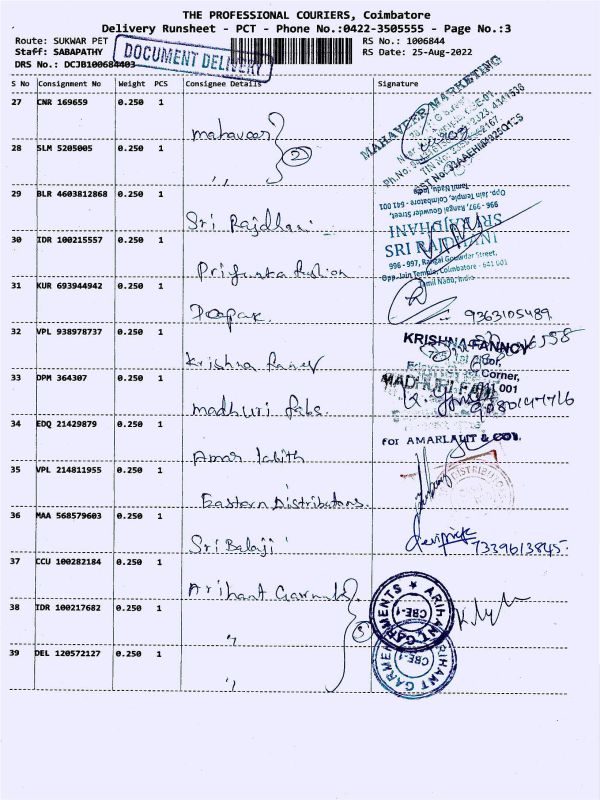 THE PROFESSIONAL COURIERS, Coimbatore
Delivery Runsheet - PCT - Phone No.:0422-3505555 - Page No.:3
Route: SUKWAR PET
RS No.: 1006844
Staff: SABAPATHY
RS Date: 25-Aug-2022
DRS No.: DCJB100684403
DOCUMENT DELIVERY
S No Consignment No Weight PCS Consignee Details Signature
27 CNR 169659 0.250 1
mahaveer
MAHAVEER MARKETING
28 SLM 5205005 0.250 1
2
,,
29 BLR 4603812868 0.250 1
Sri Rajdhani
996 - 997, Rangai Gouwder Street,
Opp. Jain Temple, Coimbatore - 641 001
Tamil Nadu, India
30 IDR 100215557 0.250 1
SRI RAJDHANI
996 - 997, Rangai Gouwdar Street,
Opp. Jain Temple, Coimbatore - 641 001
Tamil Nadu, India
31 KUR 693944942 0.250 1
Deepak
9363105489
32 VPL 938978737 0.250 1
Krishna Fancy
KRISHNA FANNCY
Corner,
001
33 DPM 364307 0.250 1
madhuri fabs.
MADHURI FAB
34 EDQ 21429879 0.250 1
Amar lalith
FOR AMARLALIT & CO.
35 VPL 214811955 0.250 1
Eastern Distributors.
DISTRIBUTORS
36 MAA 568579603 0.250 1
Sri Balaji
7339613845
37 CCU 100282184 0.250 1
Arihant Garments
ARIHANT GARMENTS
CBE-1
38 IDR 100217682 0.250 1
,,
3
39 DEL 120572127 0.250 1
,,
ARIHANT GARMENTS
CBE-1